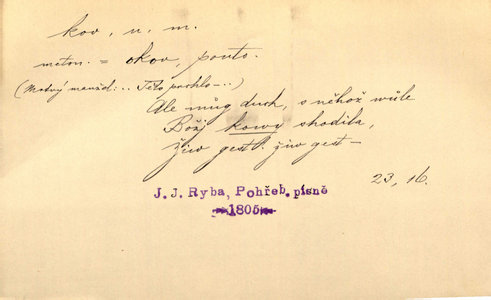 kov, u, m.
meton. = okov, pouto.
(Mrtvý manžel: .. Tělo prchlo -..)
Ale můg duch, s něhož wůle
Božj kowy shodila,
žiw gest! žiw gest —
23, 16.
J. J. Ryba, Pohřeb. písně
1805